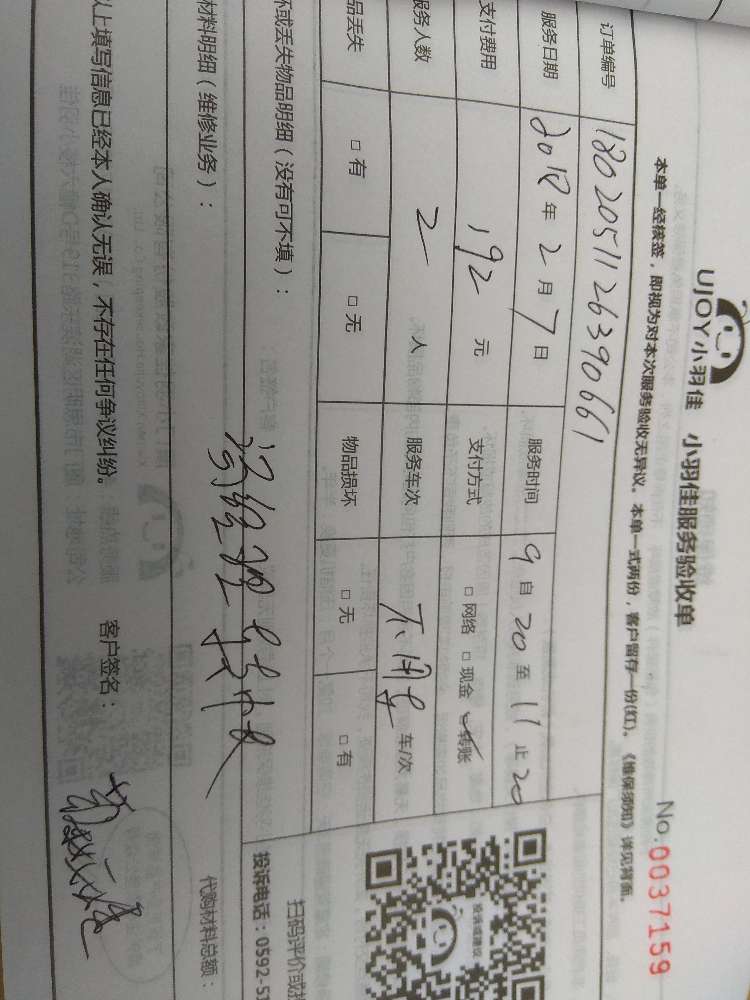 UJOY小羽佳 小羽佳服务验收单
No.0037159
本单一经核签，即视为对本次服务验收无异议。本单一式两份，客户留存一份(红)。《维保须知》详见背面。
订单编号 1802051126390661
服务日期 2018年2月7日 服务时间 9自20至11止20
支付费用 192元 支付方式 □网络 □现金 ☑转账
服务人数 2人 服务车次 不用车 车/次
品丢失 □有 □无 物品损坏 □无 □有
坏或丢失物品明细（没有可不填）：
材料明细（维修业务）：
经理转帐
扫码评价或投
投诉电话：0592-5
代购材料总额：
以上填写信息已经本人确认无误，不存在任何争议纠纷。 客户签名：